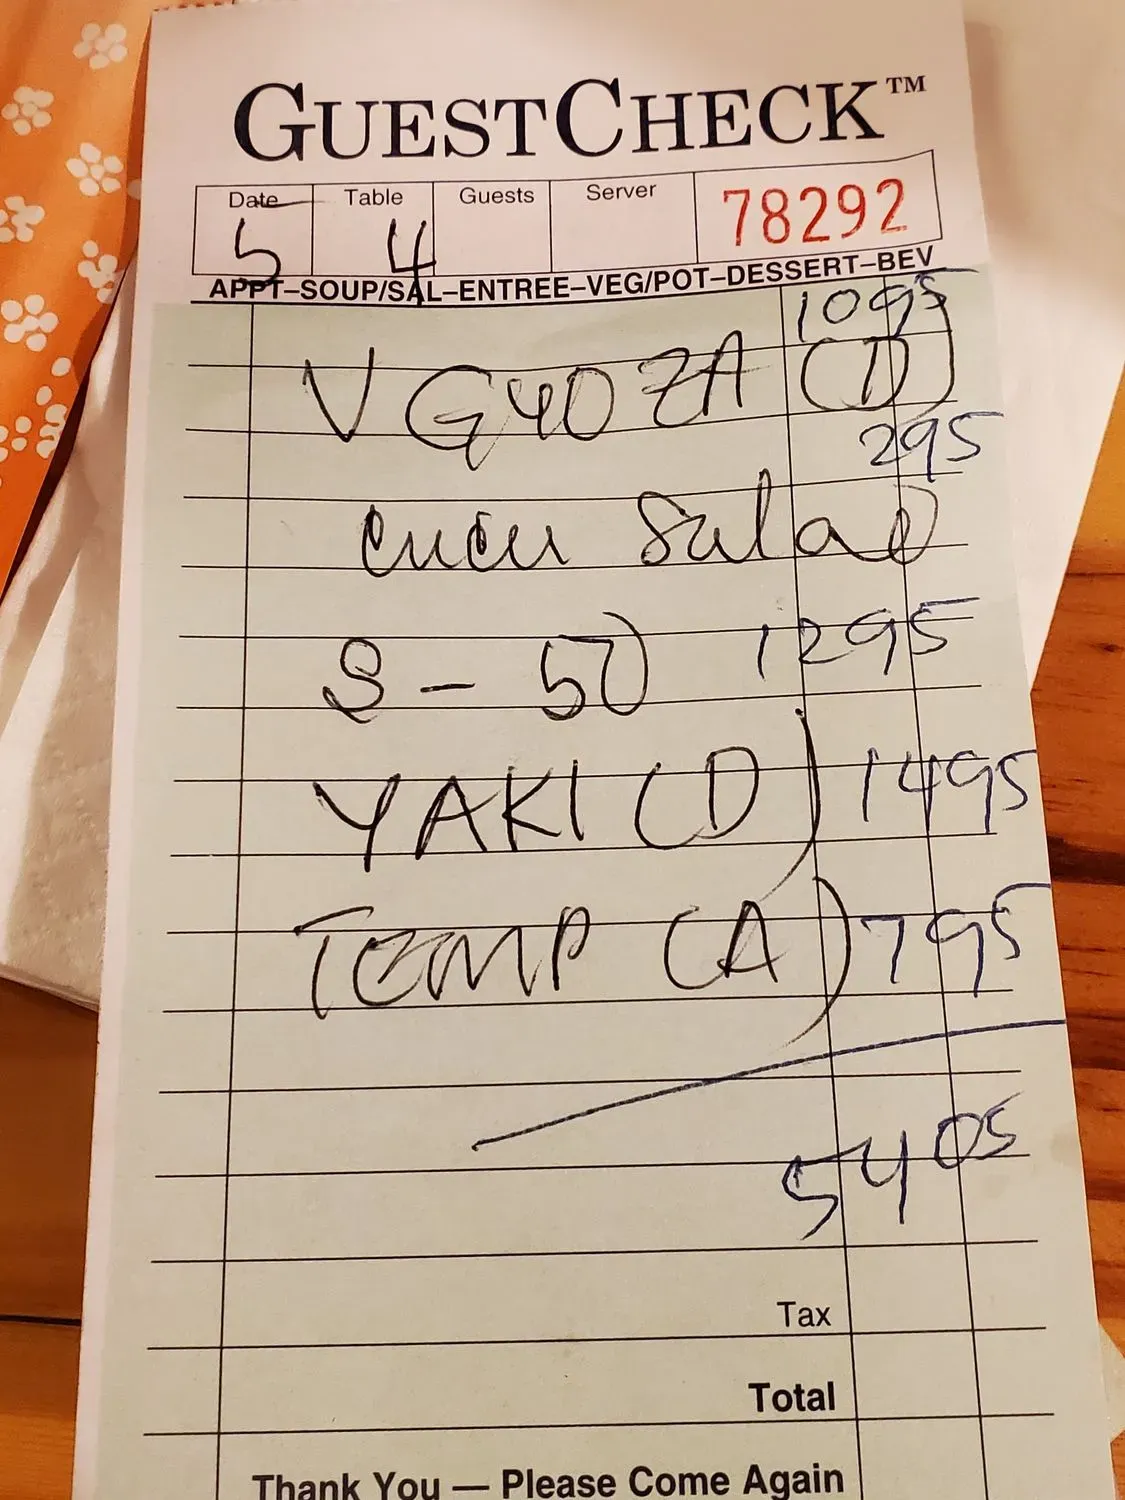 GUESTCHECK™
Date Table Guests Server 78292
5 4
APPT–SOUP/SAL–ENTREE–VEG/POT–DESSERT–BEV
1095
V GYOZA (D)
295
cucu Salad
S - 50 1295
YAKI (D) 1495
TEMP (A) 795
5405
Tax
Total
Thank You — Please Come Again